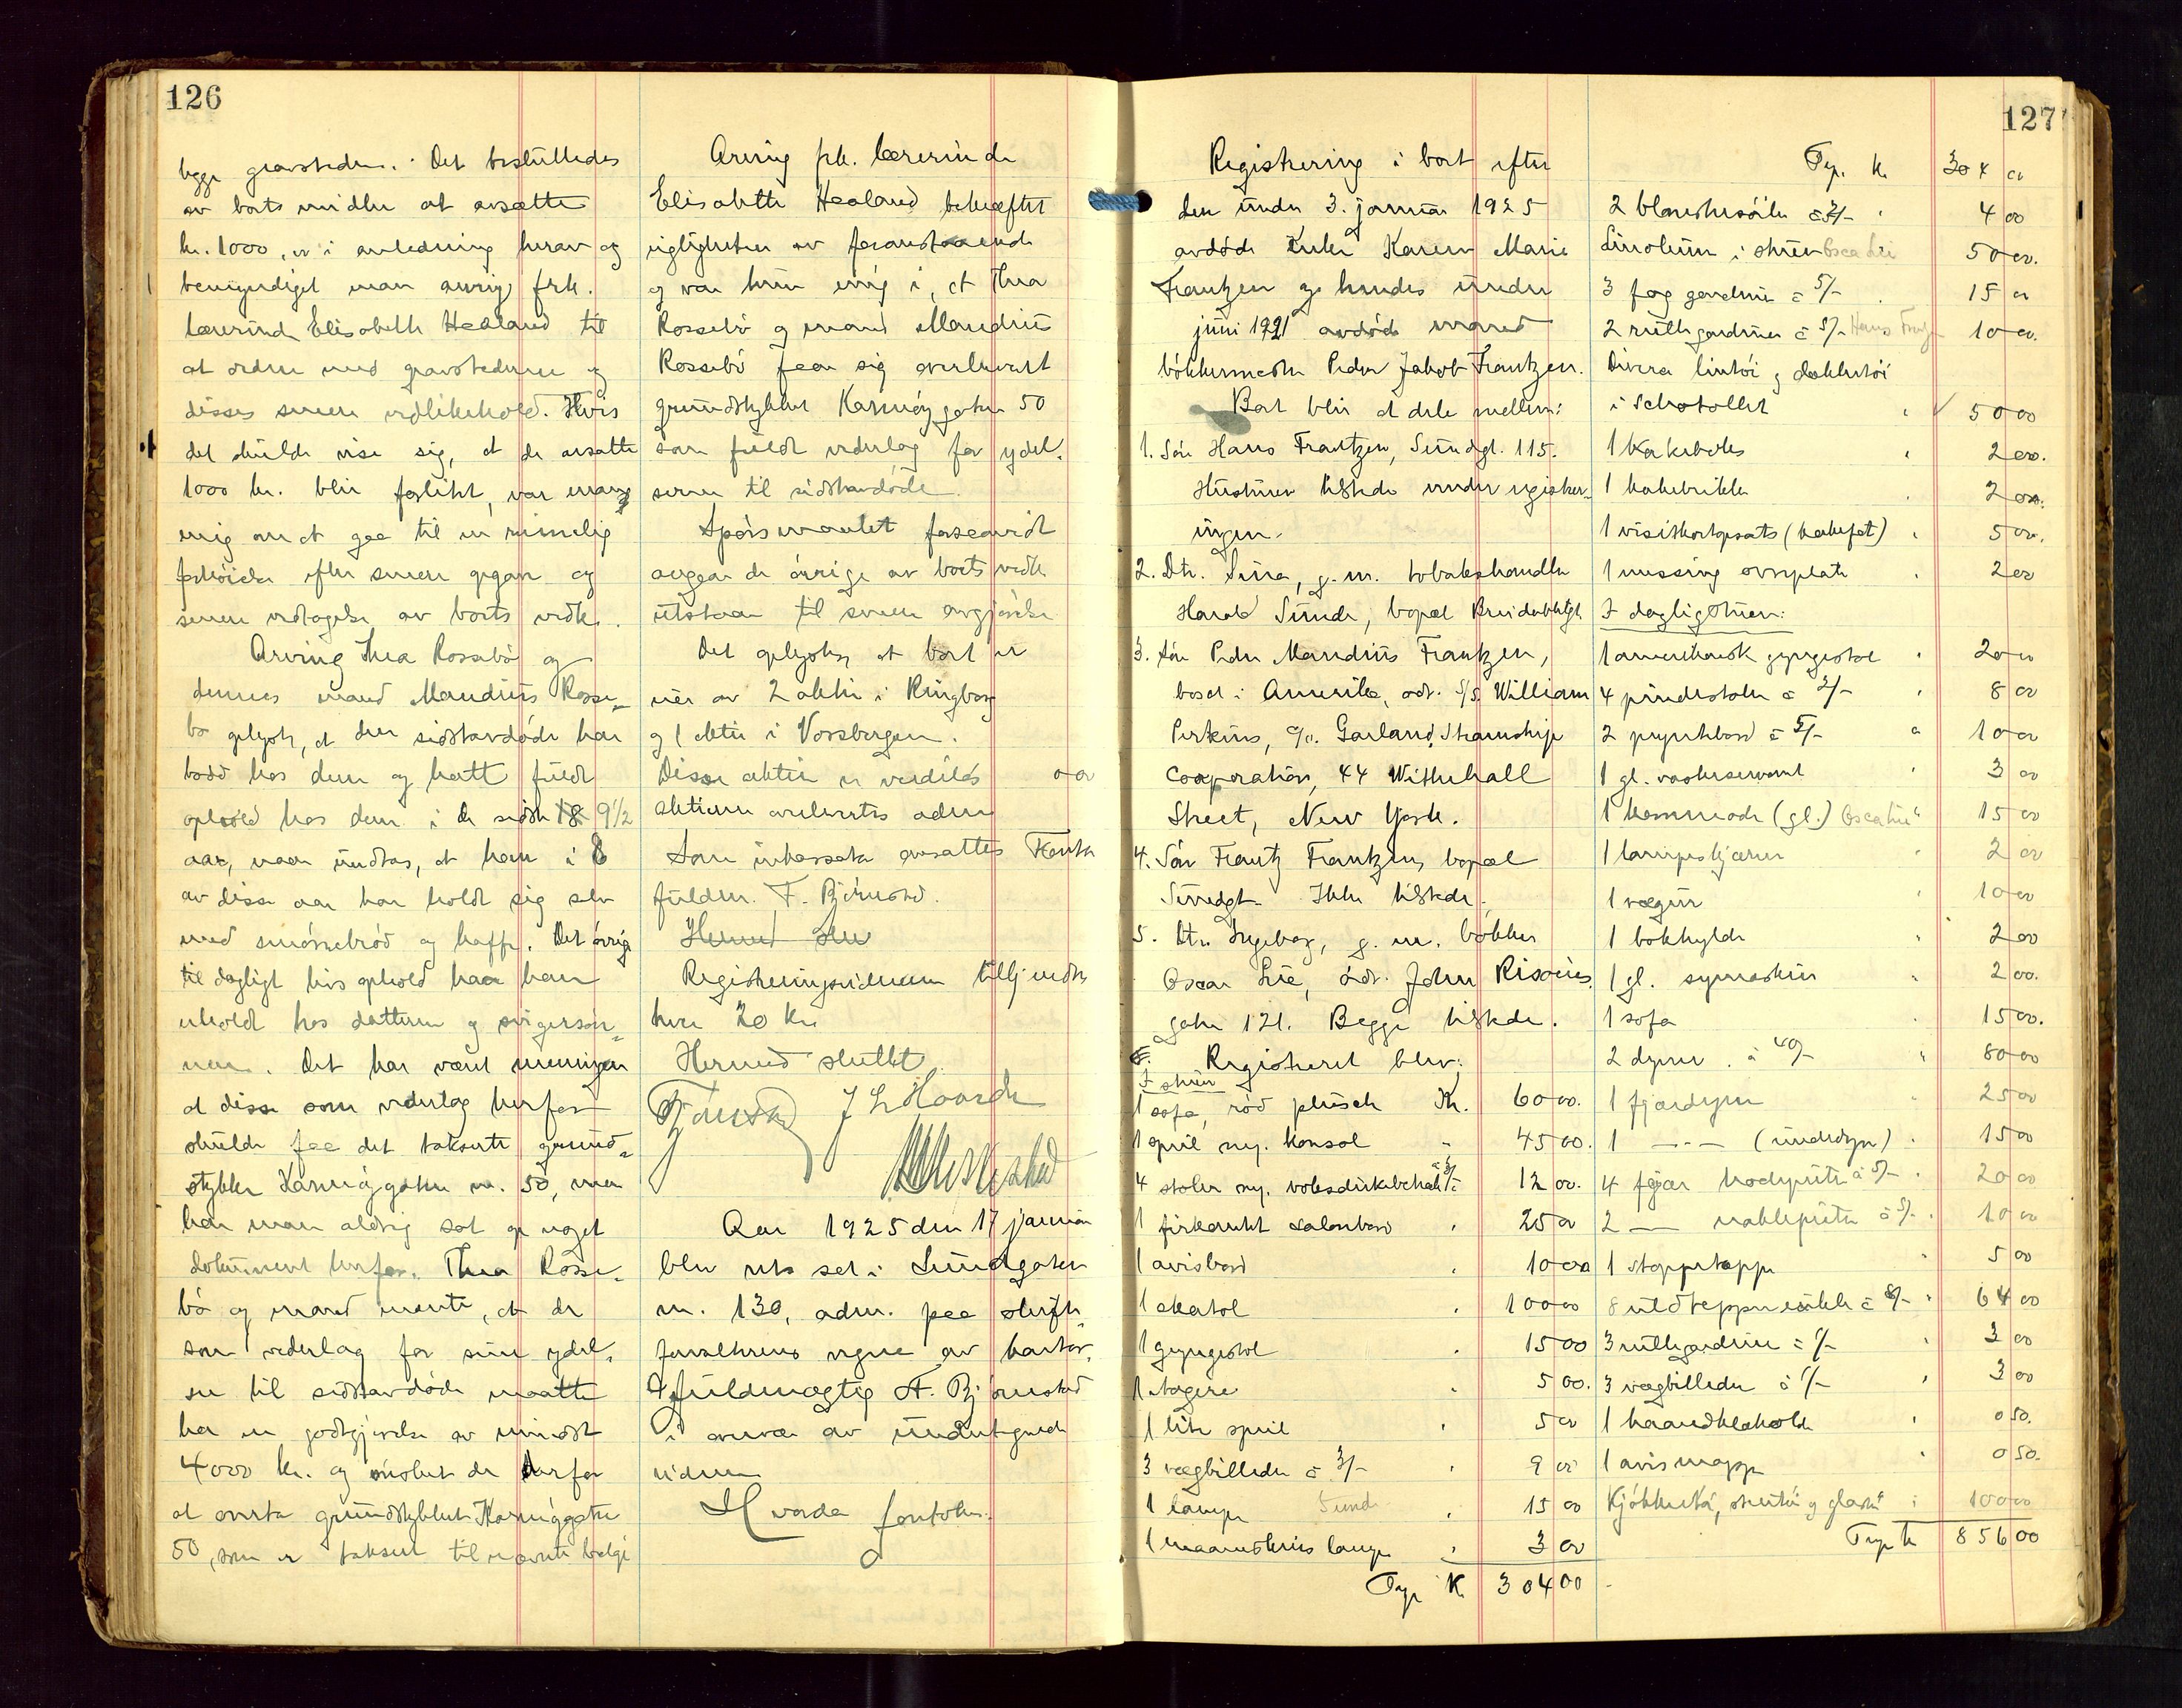 126
begge gravsteder. Det besluttedes
av boets midler at avsætte
kr. 1000, er i anledning herav og
bemyndiget man arving frk.
lærerinde Elisabeth Healand til
at ordne med gravstederne og
disses senere vedlikehold. Hvis
det skulde vise sig, at de avsatte
1000 kr. blir for litet, var man
enig om at gaa til en rimelig
forhøielse efter senere opgave og
senere vedtagelse av boets vedk.
Arving Thea Rossebø og
dennes mand Mandius Rosse-
bø oplyste, at den sidstavdøde har
bodd hos dem og hatt fuldt
ophold hos dem i de sidste 18 9 1/2
aar, naar undtas, at han i 8
av disse aar har holdt sig selv
med smørrebrød og kaffe. Det øvrige
til dagligt livs ophold har han
erholdt hos datteren og svigersøn-
nen. Det har været meningen
at disse som vederlag herfor
skulde faa det takserte grund-
stykke Karmøygaten nr. 50, men
har man aldrig sat op noget
dokument herfor. Thea Rosse-
bø og mand mente, at de
som vederlag for sine ydel-
ser til sidstavdøde maatte
ha en godtgjørelse av mindst
4000 kr. og ønsket de derfor
at overta grundstykket Karmøygaten
50, som er taksert til nævnte beløp
Arving frk. lærerinde
Elisabeth Healand bekræftet
rigtigheten av foranstaaende
og var hun enig i, at Thea
Rossebø og mand Mandius
Rossebø faar sig overlevert
grundstykket Karmøygaten 50
som fuldt vederlag for ydel-
serne til sidstavdøde.
Spørsmaalet forsaavidt
angaar de øvrige av boets vedk.
utstaar til senere avgjørelse
Det oplystes, at boet er
eier av 2 aktier i Ringborg
og 1 aktie i Vossbergen.
Disse aktier er verdiløs 0 00
aktierne avlevertes adm.
Som inkassator ansattes Kontor
fuldm. F. Bjørnstad.
Hermed slu
Registreringsvidnerne tilkjendtes
hver 20 kr.
Hermed sluttet
Bjørnstad J L Haarde
Aar 1925 den 17 januar
blev rets sat i Sundgaten
nr. 130, adm. paa skifte
forvalterens vegne av kontor-
fuldmægtig F. Bjørnstad
i overvær av undertegnede
vidner
Hvorda foretoks:
127
Registrering i boet efter
den under 3. januar 1925
avdøde enke Karen Marie
Frantzen og hendes under
juni 1921 avdøde mand
bøkkermester Peder Jakob Frantzen.
Boet blir at dele mellem:
1. Søn Hans Frantzen, Sundgt. 115.
Hustruen tilstede under registrer-
ingen.
2. Dtr. Sina, g.m. tobakshandler
Harald Sunde, bopæl Breidablikgt
3. Søn Peder Mandius Frantzen,
bosat i Amerika, adr. S/S William
Perkins, c/o. Garland Steamship
Cooporation, 44 Withehall
Street, New York.
4. Søn Frantz Frantzen, bopæl
Sundgt. Ikke tilstede.
5. Dtr. Ingeborg, g. m. bøkker
Oscar Lie, adr. Johan Risøens
gate 121. Begge tilstede.
Registreret blev:
I stuen
1 sofa, rød plusch Kr. 60 00.
1 speil m. konsol " 45 00.
4 stoler m. voksduksbetræk à 3/- 12 00.
1 firkantet salonbord " 25 00
1 avisbord " 10 00
1 skatol " 100 00
1 gyngestol " 15 00
1 etagere " 5 00.
1 lite speil " 5 00
3 vægbilleder à 3/- " 9 00
1 lampe Sunde " 15 00
1 maaneskins lampe " 3 00
Trp. Kr. 304 00
Trp. kr. 304 00
2 blomstersøiler à 2/- " 4 00
Linoleum i stuen Oscar Lie 50 00.
3 fag gardiner à 5/- . 15 00
2 rullegardiner à 5/- Hans Frantzen 10 00.
Diverse lintøi og dækketøi
i schatollet " 50 00
1 kakeboks " 2 00.
1 kakebrikke " 2 00.
1 visitkortopsats (kakefat) " 5 00.
1 messing ovnsplate " 2 00
I dagligstuen:
1 amerikansk gyngestol " 20 00
4 pindestoler à 2/- " 8 00
2 pyntebord à 5/- " 10 00
1 gl. vaskeservant " 3 00
1 kommode (gl.) Oscar Lie 15 00
1 lampeskjærm " 2 00
1 vægur 10 00
1 bokhylde " 2 00
1 gl. symaskin " 2 00.
1 sofa " 15 00.
2 dyner à 40/- " 80 00
1 fjærdyne " 25 00
1 —"— (underdyne) " 15 00
4 fjær hodeputer à 5/- " 20 00
2 — nakkeputer à 5/- " 10 00
1 stoppeteppe " 5 00
8 uldtepper enkle à 8/- " 64 00
3 rullegardiner à 1/- " 3 00
3 vægbilleder à 1/- " 3 00
1 haandklæholder " 0 50.
1 avismappe " 0 50.
Kjøkkentøi, stentøi og glastøi " 100 00
Trp. kr 856 00